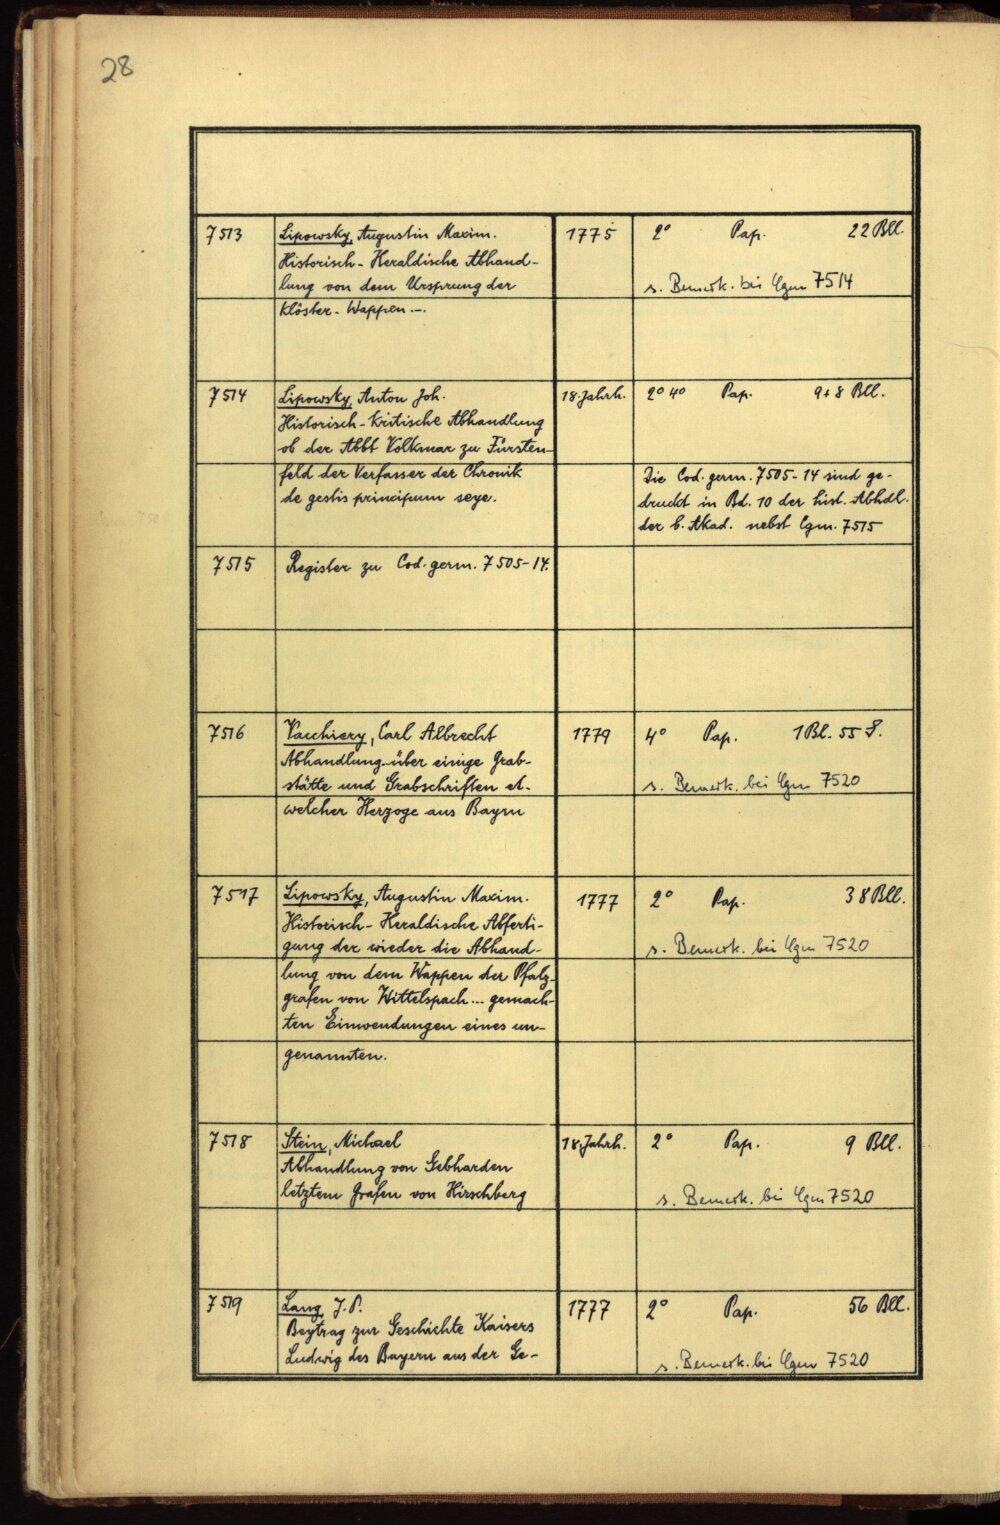 28
7513 Lipowsky, Augustin Maxim. 1775 2° Pap. 22 Bll.
Historisch-Heraldische Abhand-
lung von dem Ursprung der s. Bemerk. bei Cgm 7514
Klöster-Wappen.-.
7514 Lipowsky, Anton Joh. 18.Jahrh. 2° 4° Pap. 9+8 Bll.
Historisch-kritische Abhandlung
ob der Abbt Volkmar zu Fürsten-
feld der Verfasser der Chronik Die Cod. germ. 7505-14 sind ge-
de gestis principum seye. druckt in Bd. 10 der hist. Abhdl.
der b. Akad. nebst Cgm. 7515
7515 Register zu Cod. germ. 7505-14.
7516 Vacchiery, Carl Albrecht 1779 4° Pap. 1 Bl. 55 S.
Abhandlung über einige Grab-
stätte und Grabschriften et- s. Bemerk. bei Cgm 7520
welcher Herzoge aus Bayrn
7517 Lipowsky, Augustin Maxim. 1777 2° Pap. 38 Bll.
Historisch-Heraldische Abferti-
gung der wieder die Abhand- s. Bemerk. bei Cgm 7520
lung von dem Wappen der Pfalz-
grafen von Wittelspach... gemach-
ten Einwendungen eines un-
genannten.
7518 Stein, Michael 18.Jahrh. 2° Pap. 9 Bll.
Abhandlung von Gebharden
letztem Grafen von Hirschberg s. Bemerk. bei Cgm 7520
7519 Lang, J. P. 1777 2° Pap. 56 Bll.
Beytrag zur Geschichte Kaisers
Ludwig des Bayern aus der Ge- s. Bemerk. bei Cgm 7520